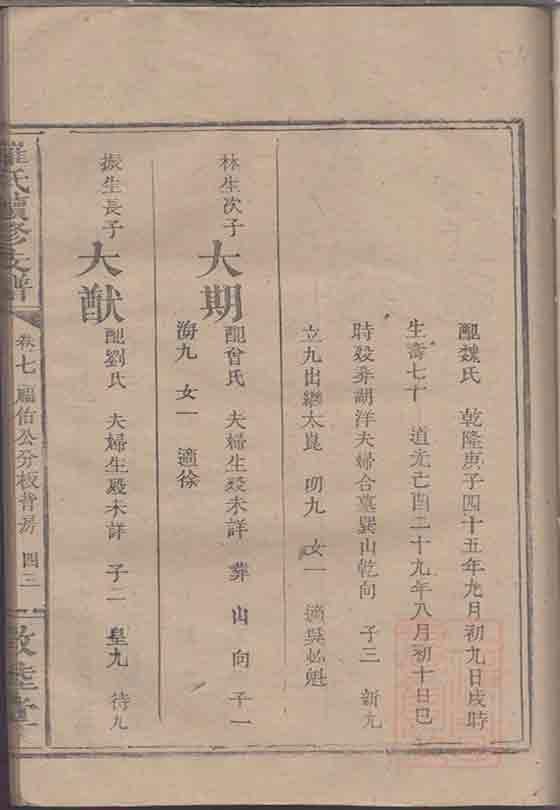 配魏氏 乾隆庚子四十五年九月初九日戌時
生壽七十 道光己酉二十九年八月初十日巳
時歿葬胡洋夫婦合墓巽山乾向 子三 新九
立九出繼太崑 明九 女一 適吳必魁
林生次子 大期 配曾氏 夫婦生歿未詳 葬 山 向 子一
海九 女一 適徐
振生長子 大猷 配劉氏 夫婦生歿未詳 子二 皇九 待九
羅氏續修支譜
卷七 福佑公分板背房 四三
敦睦堂